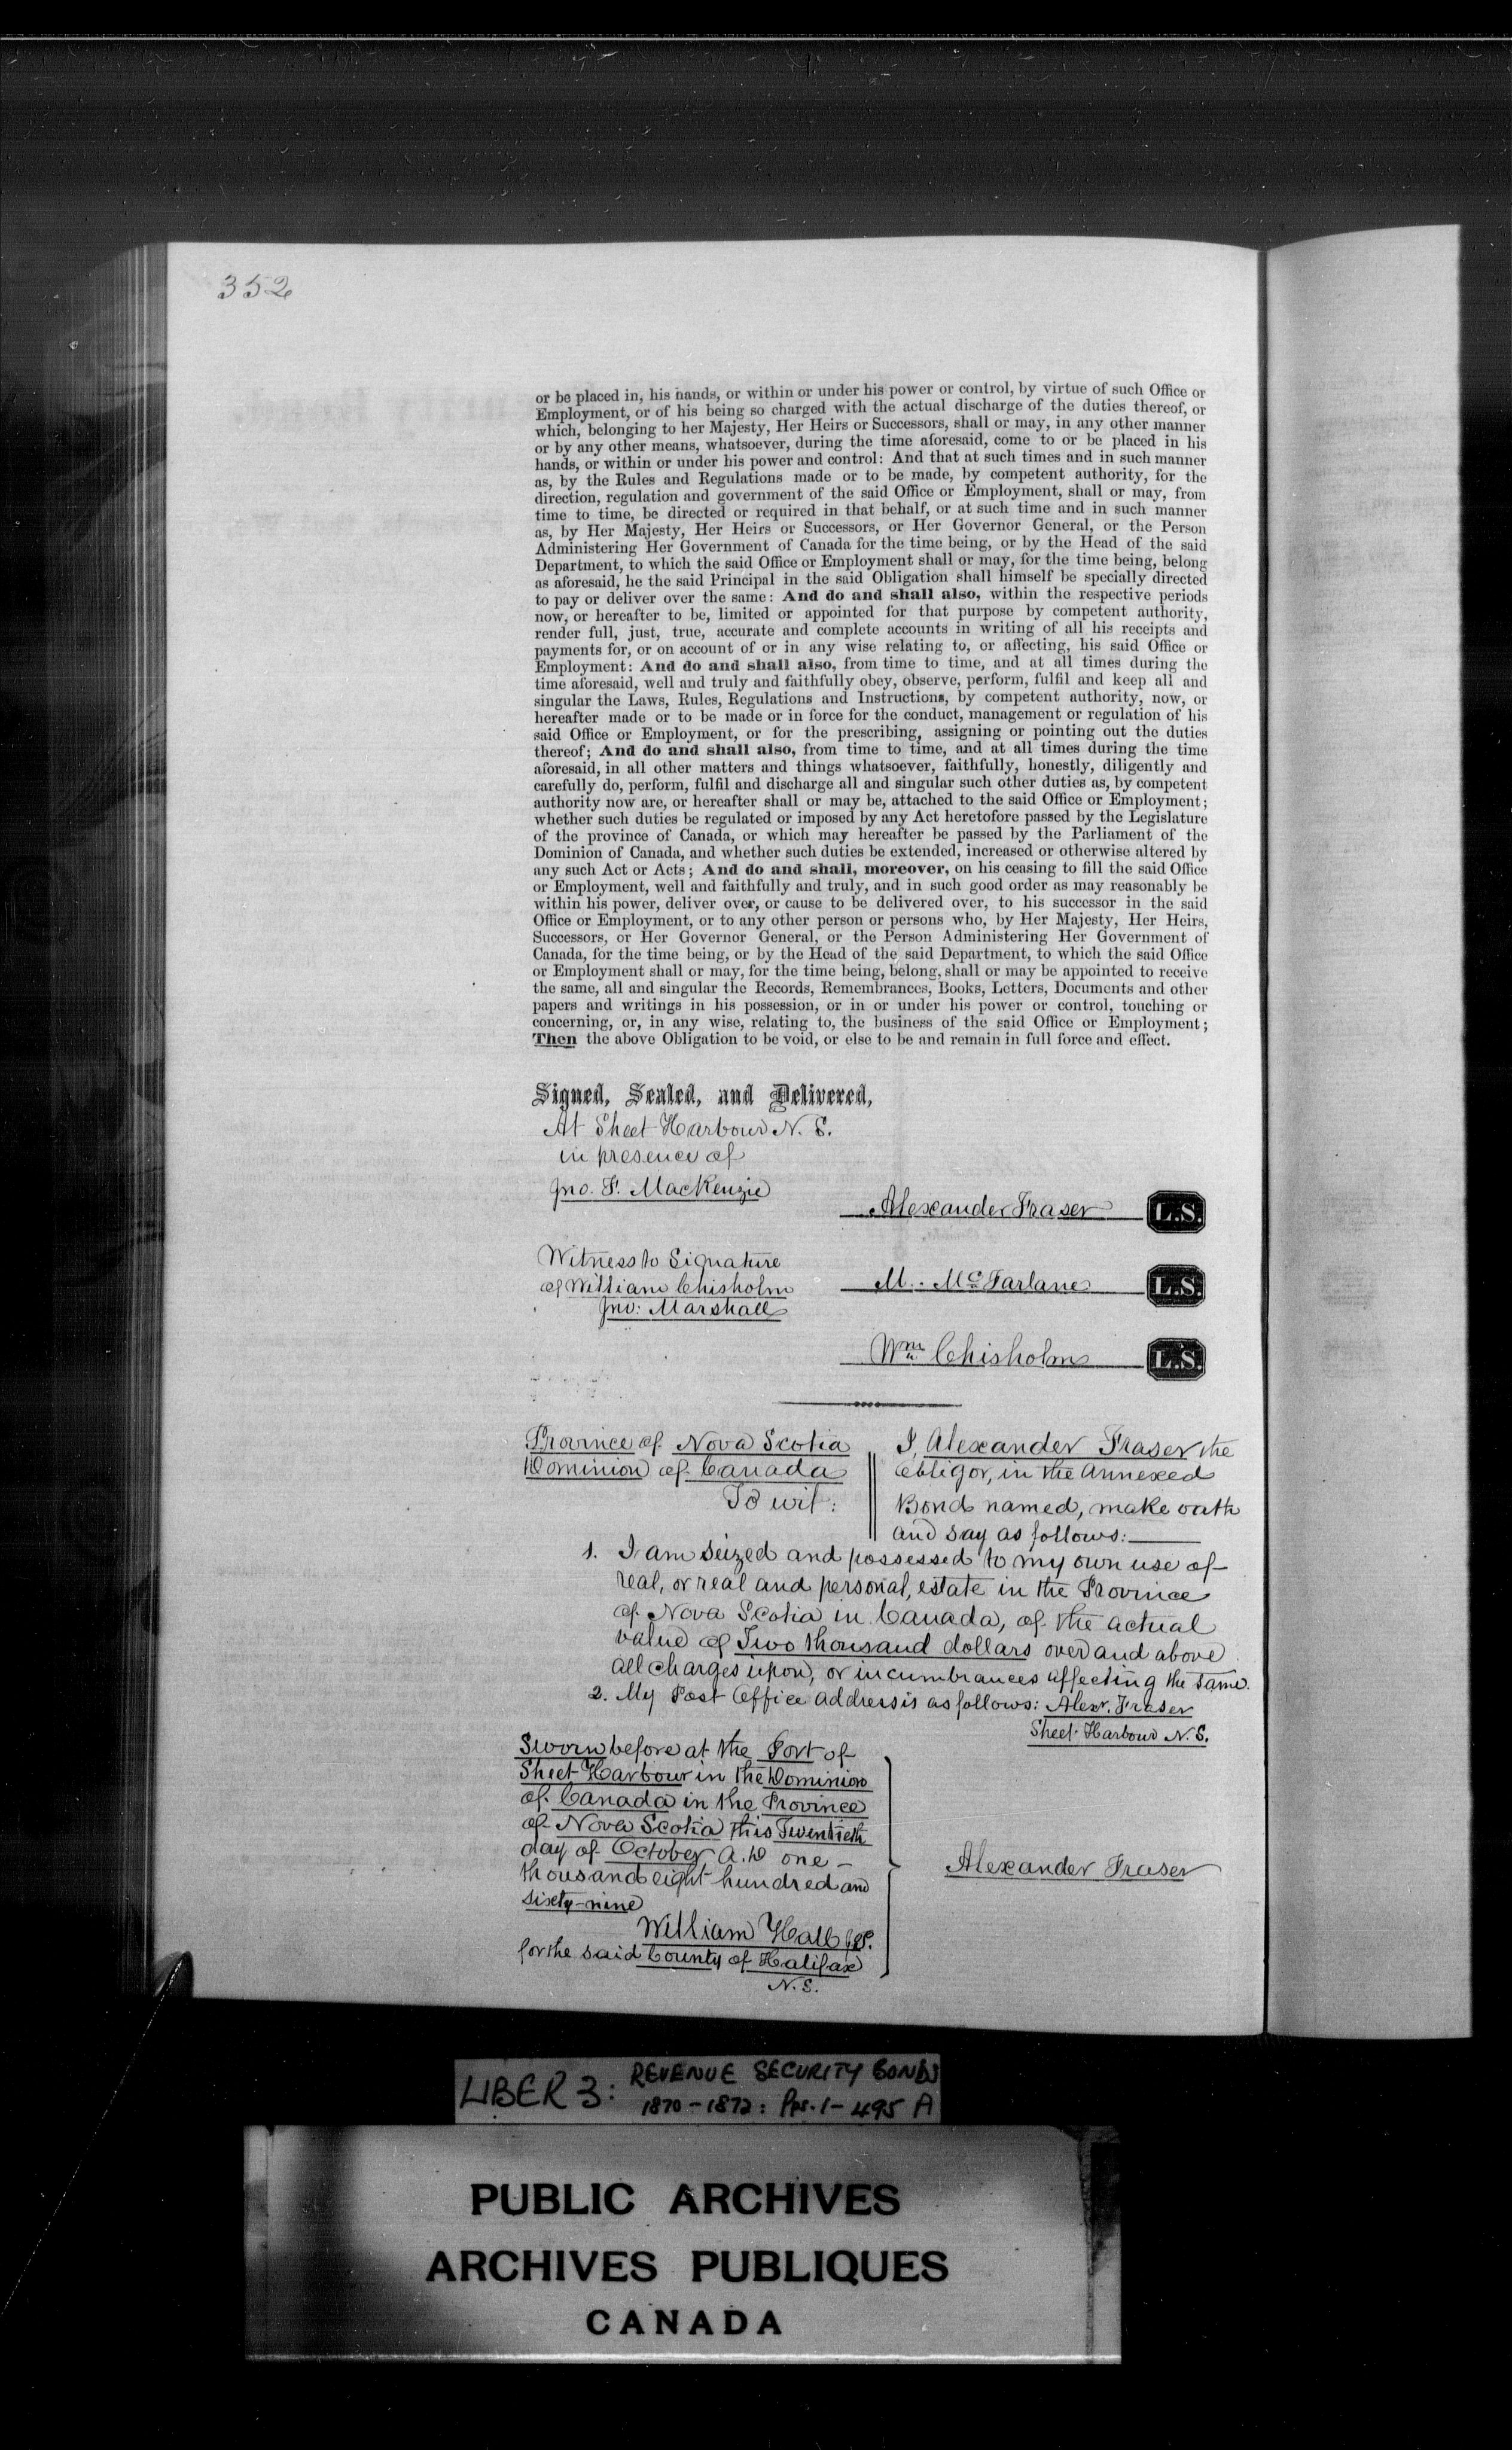 352
or be placed in, his hands, or within or under his power or control, by virtue of such Office or
Employment, or of his being so charged with the actual discharge of the duties thereof, or
which, belonging to her Majesty, Her Heirs or Successors, shall or may, in any other manner
or by any other means, whatsoever, during the time aforesaid, come to or be placed in his
hands, or within or under his power and control: And that at such times and in such manner
as, by the Rules and Regulations made or to be made, by competent authority, for the
direction, regulation and government of the said Office or Employment, shall or may, from
time to time, be directed or required in that behalf, or at such time and in such manner
as, by Her Majesty, Her Heirs or Successors, or Her Governor General, or the Person
Administering Her Government of Canada for the time being, or by the Head of the said
Department, to which the said Office or Employment shall or may, for the time being, belong
as aforesaid, he the said Principal in the said Obligation shall himself be specially directed
to pay or deliver over the same: And do and shall also, within the respective periods
now, or hereafter to be, limited or appointed for that purpose by competent authority,
render full, just, true, accurate and complete accounts in writing of all his receipts and
payments for, or on account of or in any wise relating to, or affecting, his said Office or
Employment: And do and shall also, from time to time, and at all times during the
time aforesaid, well and truly and faithfully obey, observe, perform, fulfil and keep all and
singular the Laws, Rules, Regulations and Instructions, by competent authority, now, or
hereafter made or to be made or in force for the conduct, management or regulation of his
said Office or Employment, or for the prescribing, assigning or pointing out the duties
thereof; And do and shall also, from time to time, and at all times during the time
aforesaid, in all other matters and things whatsoever, faithfully, honestly, diligently and
carefully do, perform, fulfil and discharge all and singular such other duties as, by competent
authority now are, or hereafter shall or may be, attached to the said Office or Employment;
whether such duties be regulated or imposed by any Act heretofore passed by the Legislature
of the province of Canada, or which may hereafter be passed by the Parliament of the
Dominion of Canada, and whether such duties be extended, increased or otherwise altered by
any such Act or Acts; And do and shall, moreover, on his ceasing to fill the said Office
or Employment, well and faithfully and truly, and in such good order as may reasonably be
within his power, deliver over, or cause to be delivered over, to his successor in the said
Office or Employment, or to any other person or persons who, by Her Majesty, Her Heirs,
Successors, or Her Governor General, or the Person Administering Her Government of
Canada, for the time being, or by the Head of the said Department, to which the said Office
or Employment shall or may, for the time being, belong, shall or may be appointed to receive
the same, all and singular the Records, Remembrances, Books, Letters, Documents and other
papers and writings in his possession, or in or under his power or control, touching or
concerning, or, in any wise, relating to, the business of the said Office or Employment;
Then the above Obligation to be void, or else to be and remain in full force and effect.
Signed, Sealed, and Delivered,
At Sheet Harbour N. S.
in presence of
Jno. F. MacKenzie
Alexander Fraser L.S.
Witness to Signature
of William Chisholm
Jno: Marshall
M. McFarlane L.S.
Wm Chisholm L.S.
Province of Nova Scotia
Dominion of Canada
To wit:
I, Alexander Fraser the
obligor, in the annexed
Bond named, make oath
and say as follows:
1. I am seized and possessed to my own use of
real, or real and personal, estate in the Province
of Nova Scotia in Canada, of the actual
value of Two thousand dollars over and above
all charges upon, or incumbrances affecting the same.
2. My Post Office address is as follows: Alexr. Fraser
Sheet Harbour N. S.
Sworn before at the Port of
Sheet Harbour in the Dominion
of Canada in the Province
of Nova Scotia this Twentieth
day of October A.D one
thousand eight hundred and
sixty-nine
William Hall J.P.
for the said County of Halifax
N. S.
Alexander Fraser
LIBER 3: REVENUE SECURITY BONDS
1870-1872: Pps. 1-495 A
PUBLIC ARCHIVES
ARCHIVES PUBLIQUES
CANADA